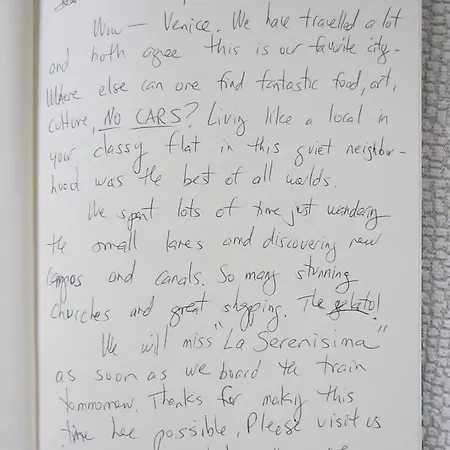 Wow — Venice. We have travelled a lot
and both agree this is our favorite city.
Where else can one find fantastic food, art,
culture, NO CARS? Living like a local in
your classy flat in this quiet neighbor-
hood was the best of all worlds.
We spent lots of time just wandering
the small lanes and discovering new
campos and canals. So many stunning
churches and great shopping. The gelato!
We will miss "La Serenisima"
as soon as we board the train
tommorrow. Thanks for making this
time here possible. Please visit us